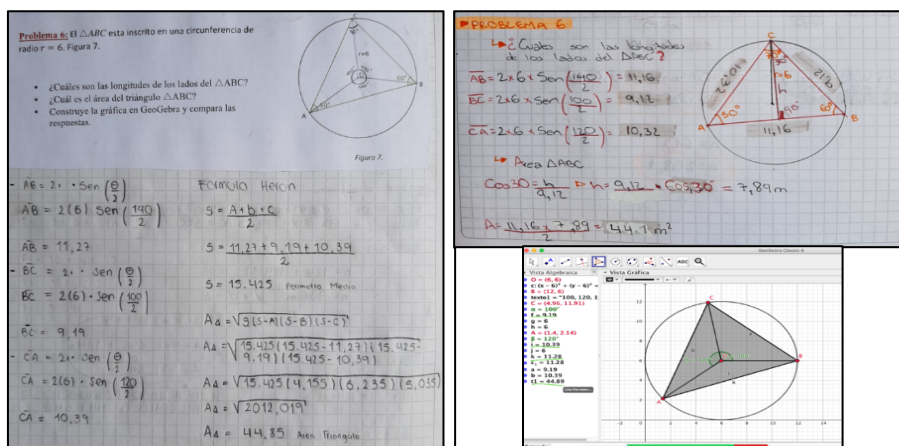 Problema 6: El △ABC esta inscrito en una circunferencia de
radio r = 6. Figura 7.
• ¿Cuáles son las longitudes de los lados del △ABC?
• ¿Cuál es el área del triángulo △ABC?
• Construye la gráfica en GeoGebra y compara las
respuestas.
C
r=6
A
B
Figura 7.
- AB = 2· · Sen (θ/2)
AB = 2(6) Sen (140/2)
AB = 11,27
- BC = 2· · Sen (θ/2)
BC = 2(6) · Sen (100/2)
BC = 9,19
- CA = 2· · Sen (θ/2)
CA = 2(6) · Sen (120/2)
CA = 10,39
Formula Heron
S = A+b+c/2
S = 11,27+9,19+10,39/2
S = 15.425 Perimetro Medio
A△ = √S(S-A)(S-B)(S-C)
A△ = √15.425(15.425-11,27)(15.425-
9,19)(15.425-10,39)
A△ = √15.425(4,155)(6,235)(5,035)
A△ = √2012,019
A△ = 44,85 Area Triangulo
PROBLEMA 6
¿Cuales son las longitudes
de los lados del △ABC?
AB = 2x6 x Sen (140/2) = 11,16
BC = 2x6 x Sen (100/2) = 9,12
CA = 2x6 x Sen (120/2) = 10,32
Area △ABC
Cos30 = h/9,12 h = 9,12 · Cos30° = 7,89m
A = 11,16 x 7,89/2 = 44.1 m²
C
10,32
9,12
r=6
h
50°
90°
60°
A
B
11,16
GeoGebra Clasico 5
ABC
Vista Algebraica
Vista Gráfica
O = (6, 6)
c: (x - 6)² + (y - 6)²
B = (12, 6)
texto1 = "100, 120, 1
C = (4.96, 11.91)
α = 100°
f = 9.19
g = 6
h = 6
A = (1.4, 2.14)
β = 120°
i = 10.39
j = 6
k = 11.28
c₁ = 11.28
a = 9.19
b = 10.39
t1 = 44.89